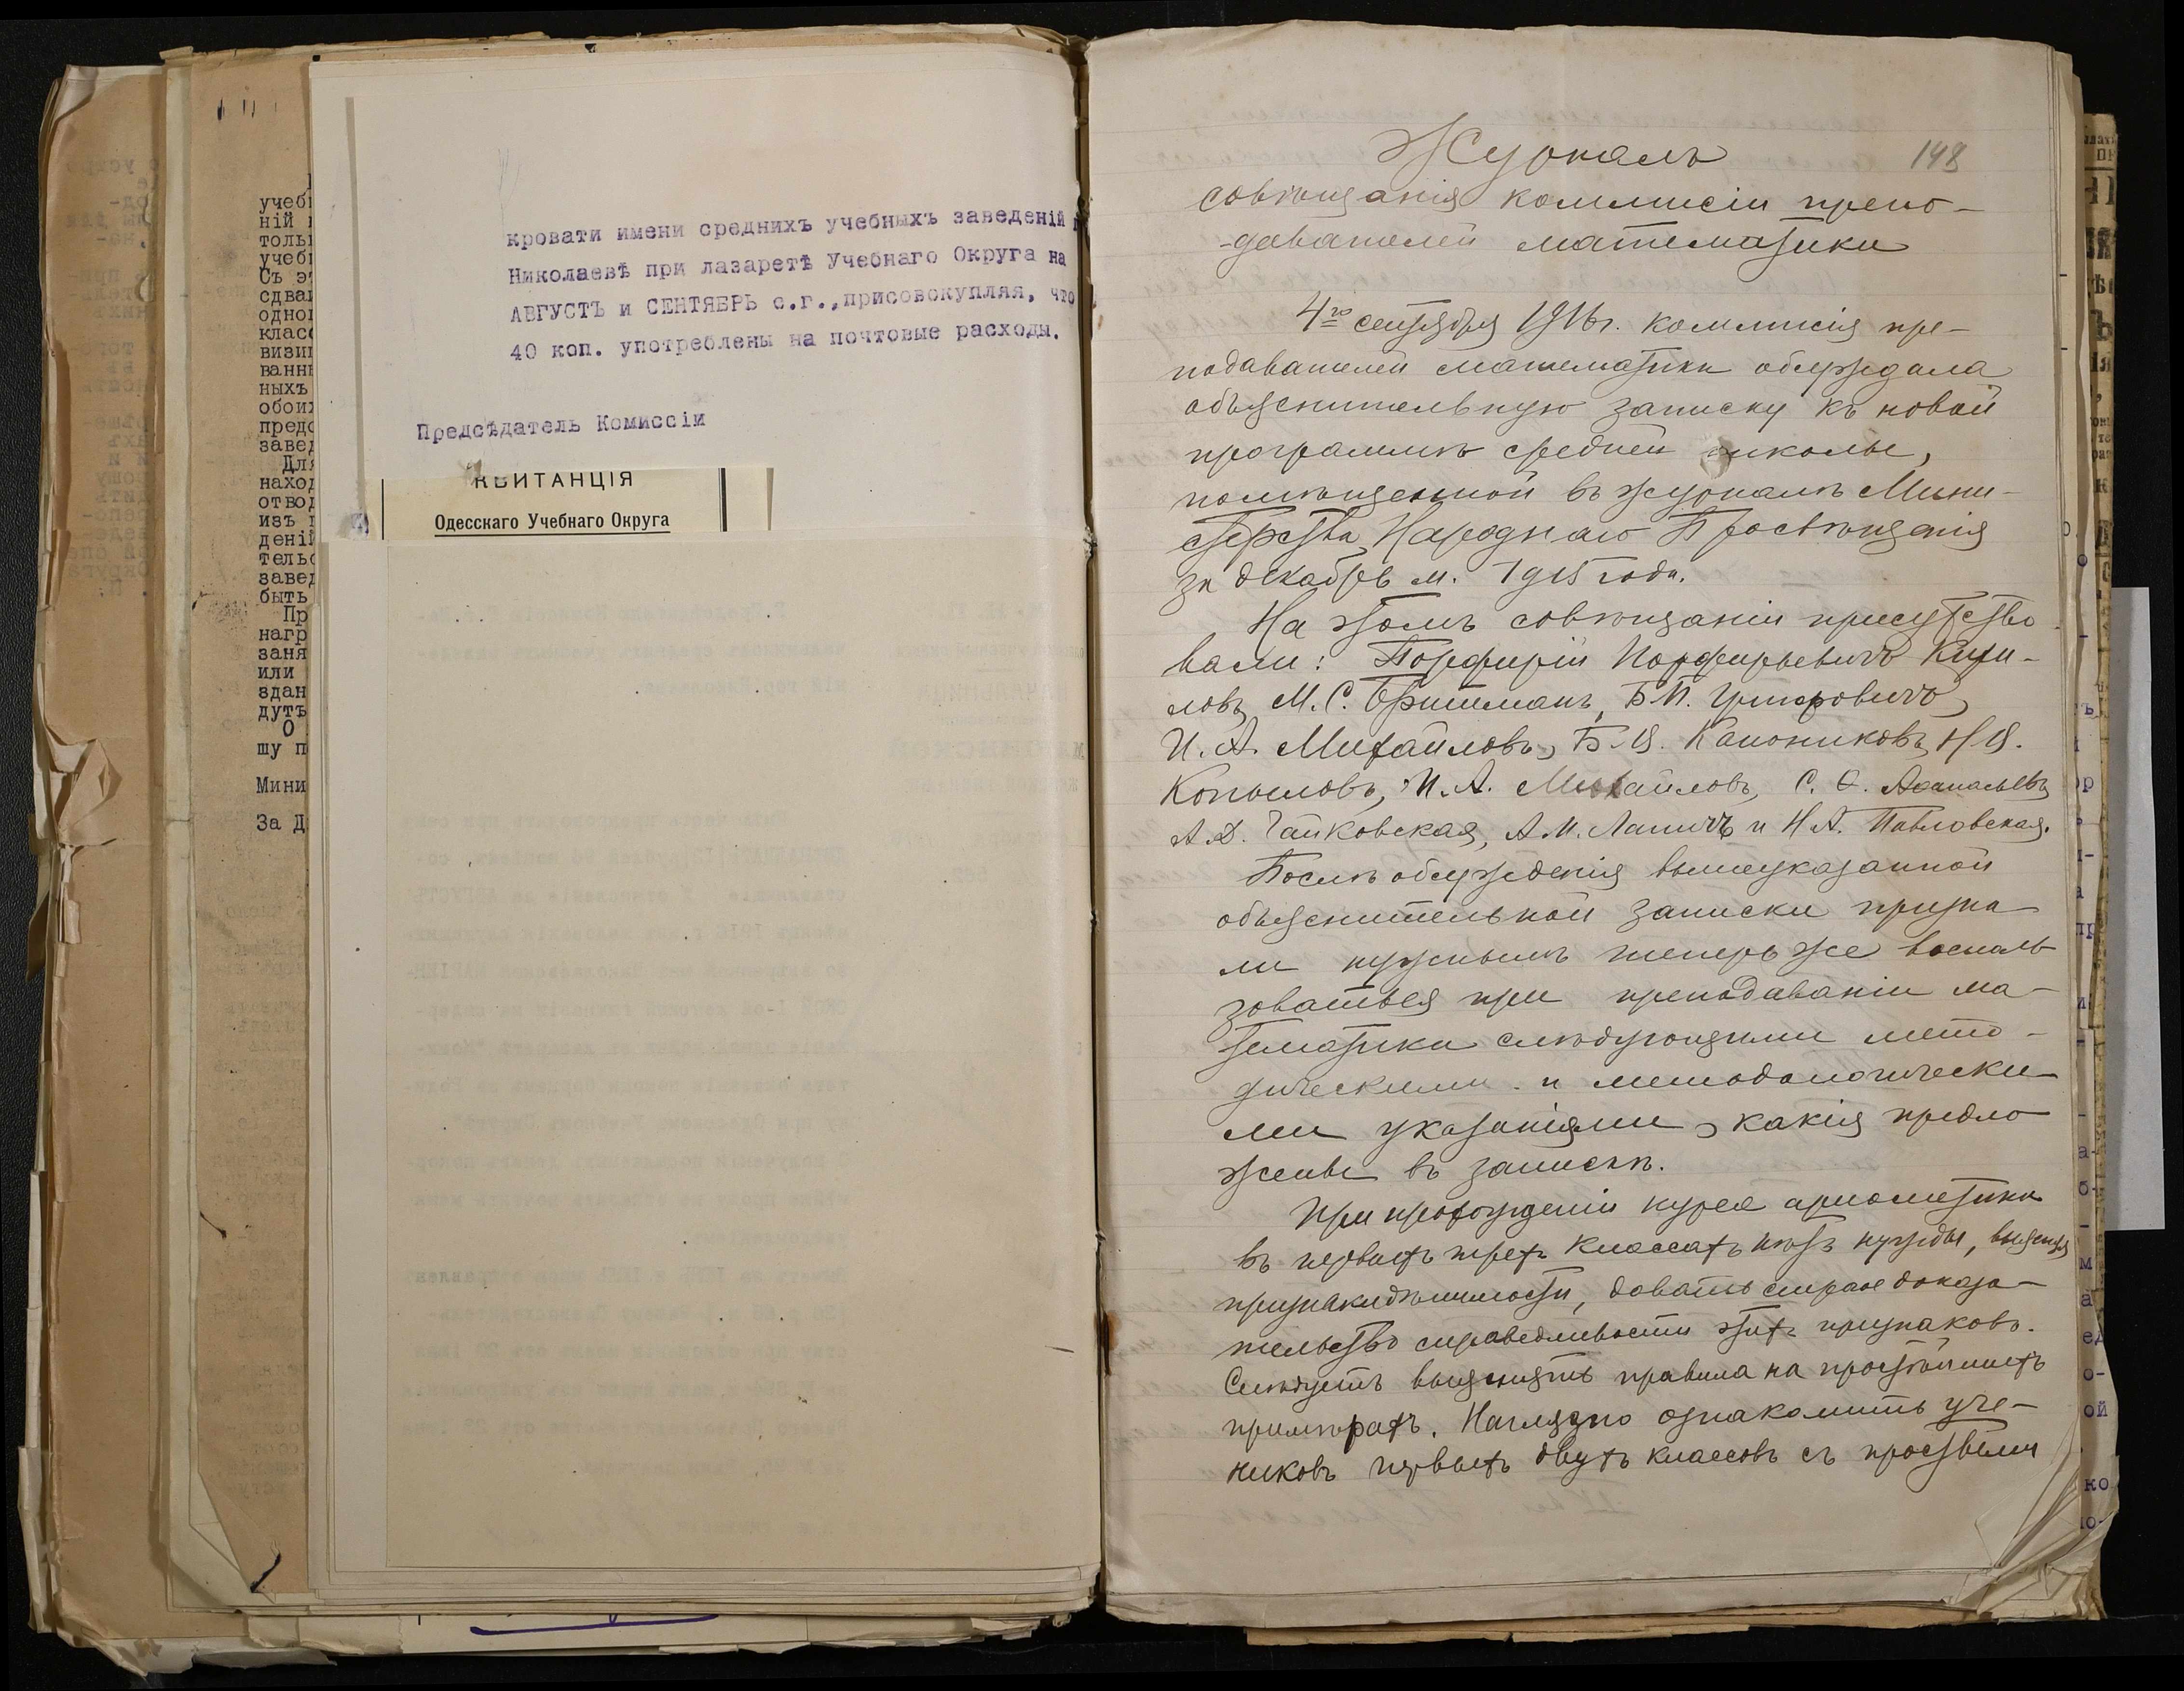 учеб
ній
толь
учеб
Съ э
сдва
одно
клас
визи
ванн
ныхъ
обои
пред
заве
Для
нахо
отво
изъ
дені
тель
заве
быть
Пр
нагр
заня
или
здан
дутъ
О
шу п
Мини
За Д
кровати имени среднихъ учебныхъ заведеній
Николаевѣ при лазаретѣ Учебнаго Округа на
АВГУСТЪ и СЕНТЯБРЬ с.г.,присовокупляя, что
40 коп. употреблены на почтовые расходы.
Предсѣдатель Комиссіи
КВИТАНЦІЯ
Одесскаго Учебнаго Округа
148
Журналъ
совѣщанія коммисіи препо-
-давателей математики
4го сентября 1916г. коммисія пре-
подавателей математики обсуждала
объяснительную записку къ новой
программѣ средней школы,
помѣщенной въ журналѣ Мини-
стерства Народнаго Просвѣщенія
за декабрь м. 1915 года.
На этомъ совѣщаніи присутство
вали: Порфирій Порфирьевичъ
ловъ, М. С. Бритманъ, Б. П.
И. А. Михайловъ, Б. Я. Канониковъ, Н Я.
Копыловъ, И. А. Михайловъ, С. Ѳ. Аѳанасьевъ
А. Д. Гайковская, А. И. Лапичъ и Н А. Павловская.
Послѣ обсужденія вышеуказанной
объяснительной записки призна
ли нужнымъ теперь же восполь
зоваться при преподаваніи ма-
тематики слѣдующими мето-
дическими и методологически
ми указаніями, какія предло
жены въ запискѣ.
При прохожденіи курса ариѳметики
въ первыхъ трехъ классахъ нѣтъ нужды, выясняя
признаки дѣлимости, давать строгое доказа-
тельство справедливости этихъ признаковъ.
Слѣдуетъ выяснять правила на простѣйшихъ
примѣрахъ. Наглядно ознакомить уче-
никовъ первыхъ двухъ классовъ съ простыми